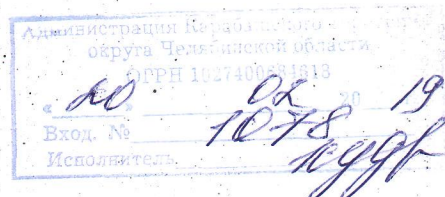 Администрация Карабашского городского
округа Челябинской области
ОГРН 1027400684613
« 20 » 02 20 19
Вход. № 1078
Исполнитель